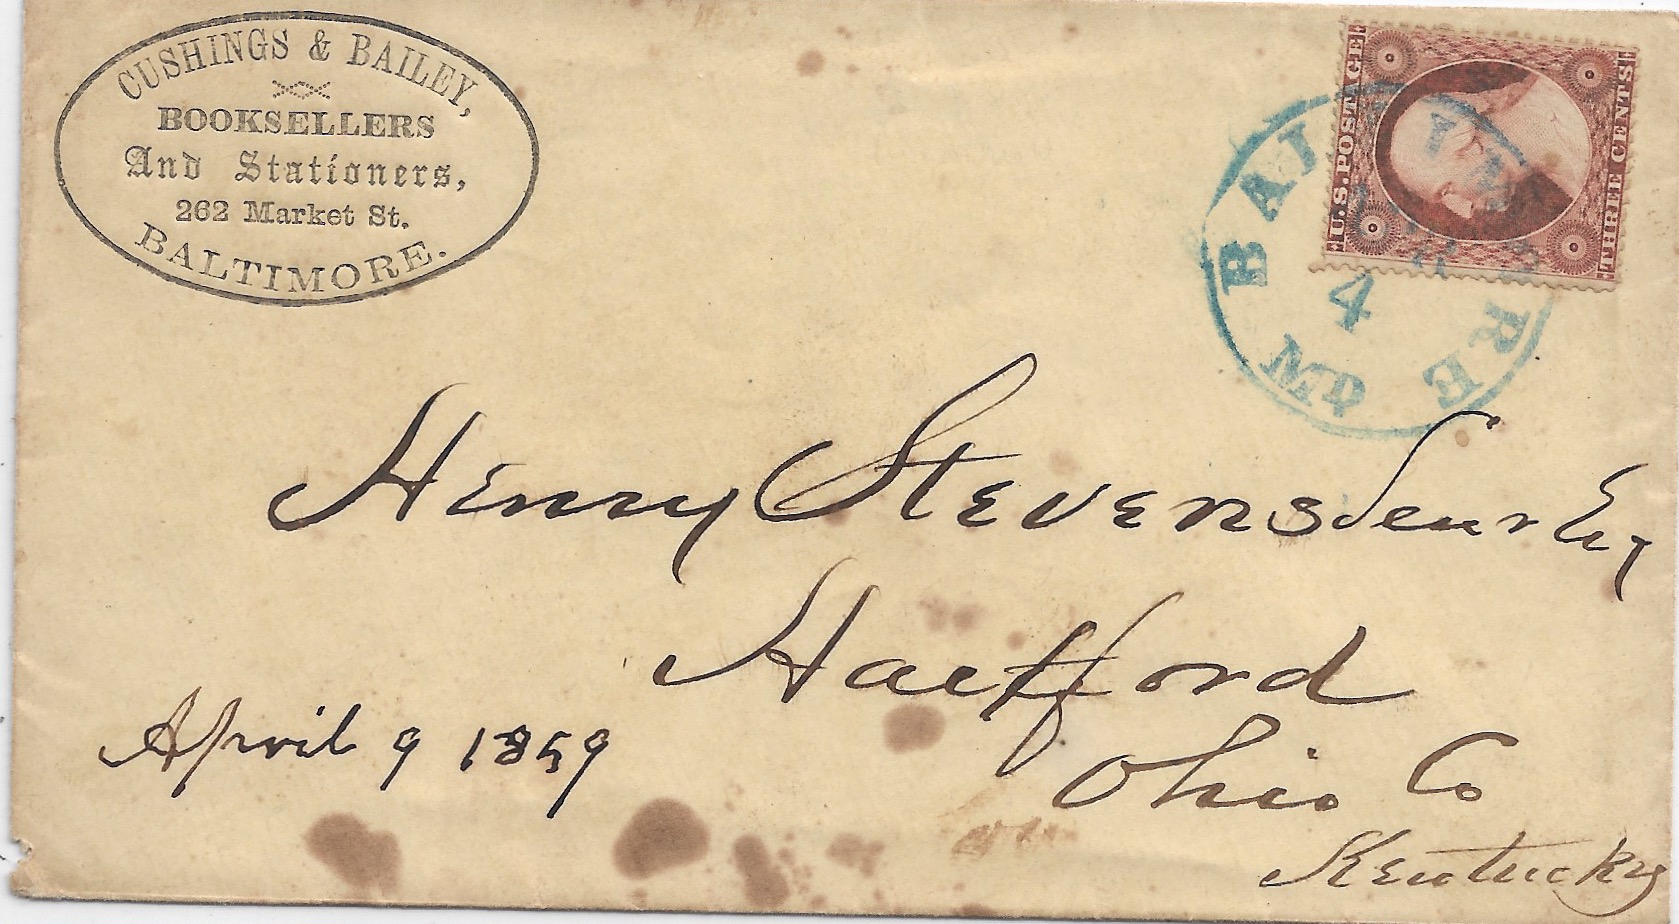 CUSHINGS & BAILEY,
BOOKSELLERS
And Stationers,
262 Market St.
BALTIMORE.
U.S. POSTAGE
THREE CENTS
BALTIMORE
4
MD
Henry Stevens Senr Esq
Hartford
Ohio Co
Kentucky
April 9 1859